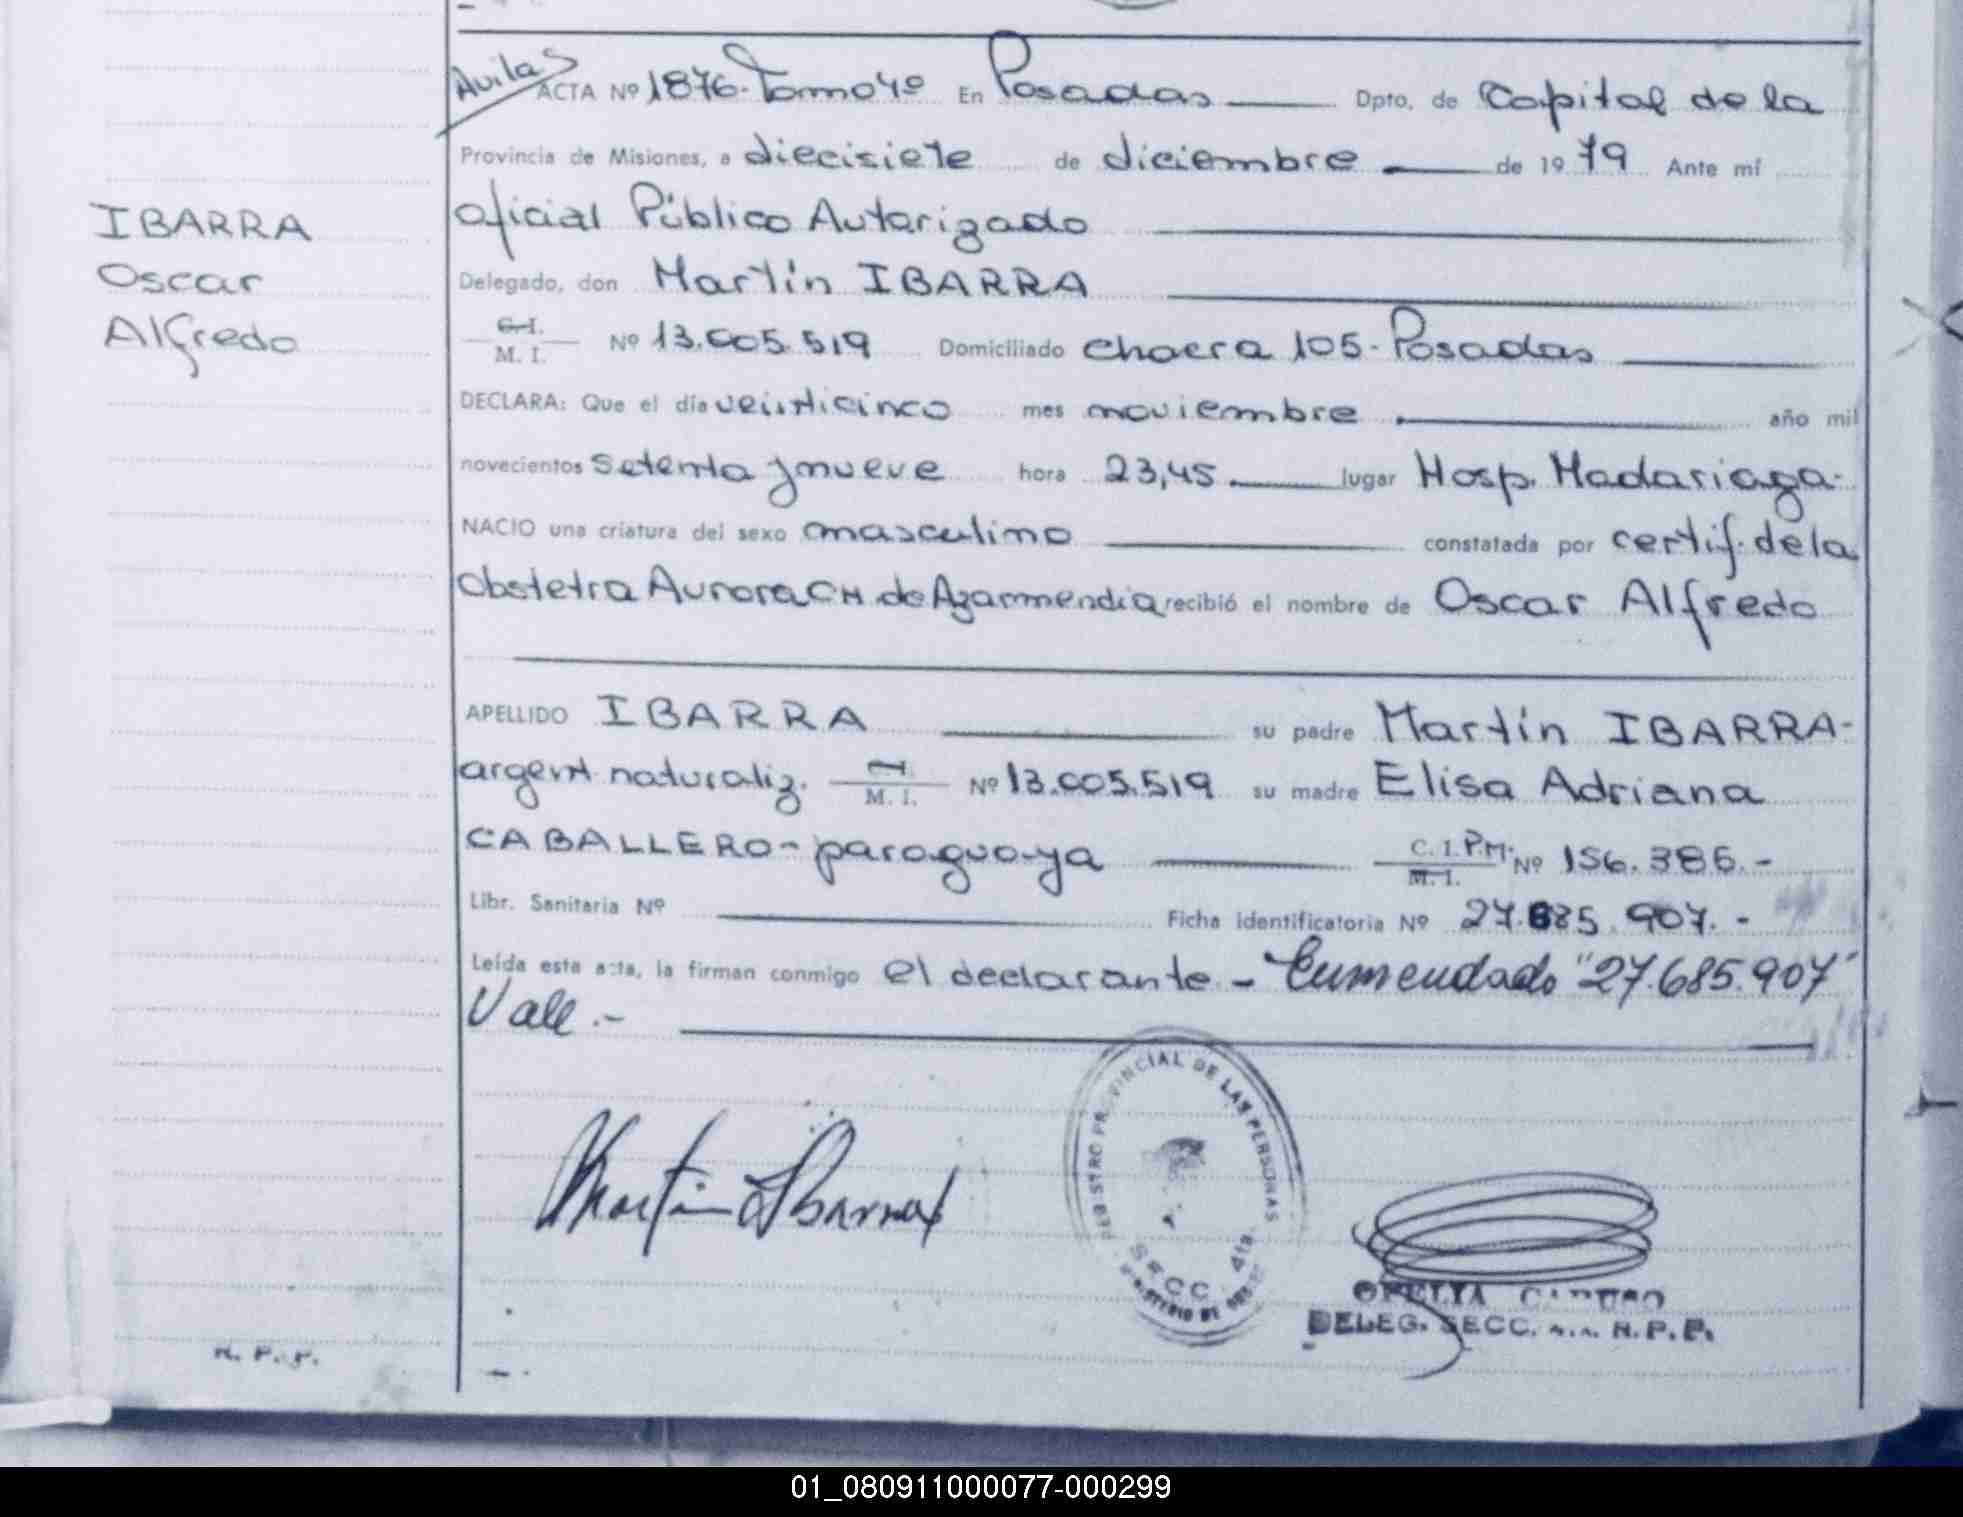 Avila
ACTA Nº 1876. Tomo 4º En Posadas Dpto. de Capital de la
Provincia de Misiones, a diecisiete de diciembre de 1979 Ante mí
oficial Público Autorizado
Delegado, don Martín IBARRA
C.I.
M. I. Nº 13.005.519 Domiciliado chacra 105 - Posadas
DECLARA: Que el día veinticinco mes noviembre año mil
novecientos setenta y nueve hora 23,45 lugar Hosp. Madariaga.
NACIO una criatura del sexo masculino constatada por certif. de la
Obstetra Aurora CH. de Azarmendia recibió el nombre de Oscar Alfredo
APELLIDO IBARRA su padre Martín IBARRA-
argent. naturaliz. M. I. Nº 13.005.519 su madre Elisa Adriana
CABALLERO - paraguaya C. I. P.M. M. I. Nº 156.386.-
Libr. Sanitaria Nº Ficha identificatoria Nº 27.685.907.-
Leída esta acta, la firman conmigo el declarante - Enmendado "27.685.907"
Vale.-
IBARRA
Oscar
Alfredo
Martin Ibarra
REGISTRO PROVINCIAL DE LAS PERSONAS
SECC. 4ta.
MINISTERIO DE
DELEG. SECC. R.P.P.
R. P. P.
01_080911000077-000299